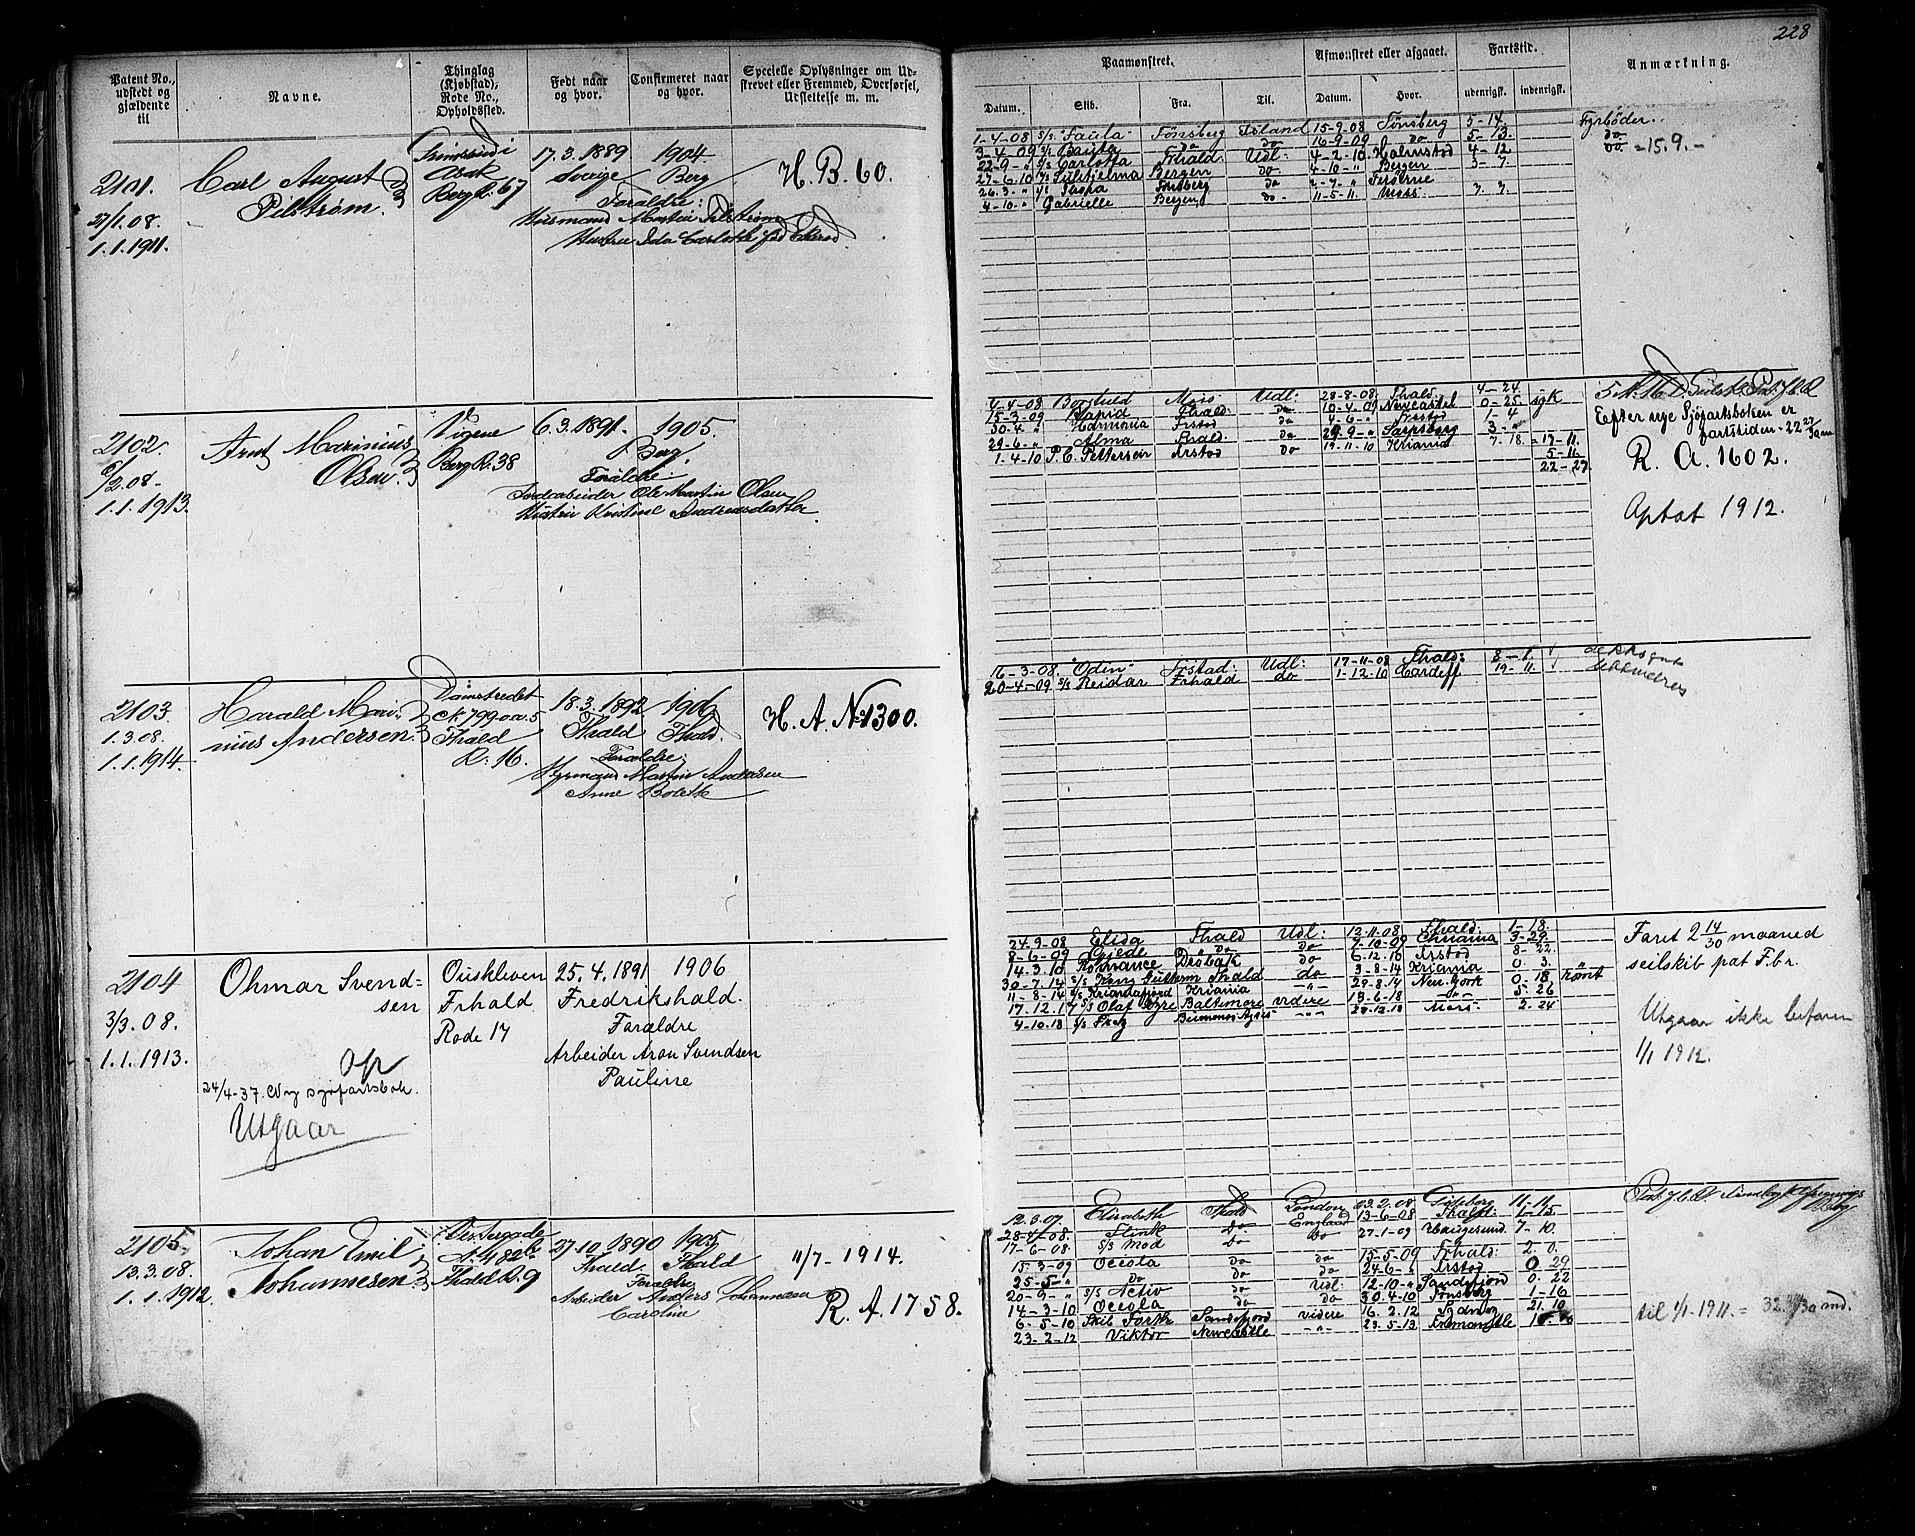 228
Patent No., udstedt og gjældende til
Navne.
Thinglag (Kjøbstad), Rode No., Opholdssted.
Født naar og hvor.
Confirmeret naar og hvor.
Specielle Oplysninger om Udskrevet eller Fremmed, Overførsel, Udslettelse m. m.
Paamønstret.
Afmønstret eller afgaaet.
Fartstid.
Anmærkning.
Datum. Skib. Fra. Til. Datum. Hvor. udenrigsk. indenrigsk.
2101.
27/1.08.
1.1.1911.
Carl August
Pilstrøm.
Asak
Berg R. 67
17.3.1889
Sverige
1904
Berg
Forældre:
Husmand Martin Pilstrøm
Hustru Ida Carlotta
H. B. 60.
1-4-08 s/s "Paula" Tönsberg Island 15-9-08 Tönsberg 5-14. Fyrböder.
3-4-09 s/s Bauta do do 16-9-09 do 5-13. do
22-9-" s/s Carlotta Fhald. Udl: 4-2-10 Holmstad 4-12. do = 15.9.-
27-6-10 s/s Sulitjelma Bergen do 4-10-" Bergen 3-7.
26.3-" Tönsberg do 2-7-"
4-10-" Gabrielle Bergen do 11-5-11. Moss 7. 7.
2102.
6/2.08-
1.1.1913.
Arnt Marinius
Olsen.
Vigene
Berg R. 38
6.3.1891.
1905.
Berg
Forældre:
Jordarbeider Ole Martin Olsen
Hustru Kristine Andreasdatter
4-4-08 Borghild Moss Udl: 28-8-08 Fhald. 4-24.
15-3-09 Rapid Fhald: do 10-4-09 Newcastel 0-25. syk
30-4-" Harmonia Frstad do 4-6-" Frstad 1-4
29-6-" Alma Frald: do 29-9-" Sarpsborg 3-"
1-4-10 P. C. Pettersen Frstad do 19-11-10 Kriania 7-18. = 17-11.
5-11
22-27.
Efter nye Sjöfartsboken er
fartstiden - 22 27/30 m
R. A. 1602.
Aptat 1912.
2103.
1.3.08.
1.1.1914.
Harald Mari-
nius Andersen.
Damstredet
No. 799
Fhald
R: 16.
18.3.1892
Fhald
1906
Fhald.
Forældre:
Martin Andersen
Anne Bolette
H. A. No 1300.
16-3-08. "Odin" Frstad: Udl: 17-11-08 Fhald: 8-1.
20-4-09 s/s Reidar Frhald do 1-12-10 Cardiff 19-11.
dekksgut
2104
3/3.08.
1.1.1913.
Ohmar Svend-
sen
Frhald
Rode 17
25.4.1891
Fredrikshald.
1906
Forældre
Arbeider Aron Svendsen
Pauline
Op
24/4-37. Ny sjöfartsbok.
Utgaar
24-9-08 Elida Fhald Udl: 12-11-08 Fhald: 1-18.
8-6-09 Gjelde do do 7-10-09 Chriania 3-29.
14.3.10 Romance Dröbak do 6.12.10 Frstad 8-22
30-7.14 s/s Kong Guthorm Fhald do 3-8-14 Kriania 0. 3.
11-8-14 s/s Kristianiafjord Kriania -"- 29-8-14 New York 0-18, römt
17.12.17 s/s Olaf Kyrre Baltimore videre 13-6-18 -"- 5-26
4-10.18 s/s Buenos Ayres -"- 28-12.18 2-24
Faret 2 14/30 maaned
seilskib pat F.br.
Utgaar ikke befaren
1/1 1912.
2105.
13.3.08.
1.1.1912.
Johan Emil
Johannesen
Vestergade
No. 482 b
Fhald R. 9
27.10 1890
Fhald
1905
Fhald
Forældre
Arbeider Anders Johannesen
Caroline
11/7-1914.
R. A. 1758.
12.3.07. Elisabeth Fhald London 03.2.08 Göteborg 11-11.
28-4-08. Flink Do England 13-6-08 Fhald: 1-15
17-6-08 s/s Mod Do Do 27-1-09 Haugesund. 7-10.
15-3-09 Oceola do do 15-5-09 Frhald: 2. 0.
25-5-" Do do do 24-6-" Frstad 0 29
20-9-" s/s Activ do Udl: 12-10-" Sandefjord 0. 22
14-3-10 Oceola do do 30.4-10 Tönsberg 1-16
6-5-10 Skib Fork Sandefjord videre 16.2.12 Sydney 21.10
23-2-12 Viktor Newcastle -"- 23-5-13 Fremantle
til 1/1-1911. = 32 md.